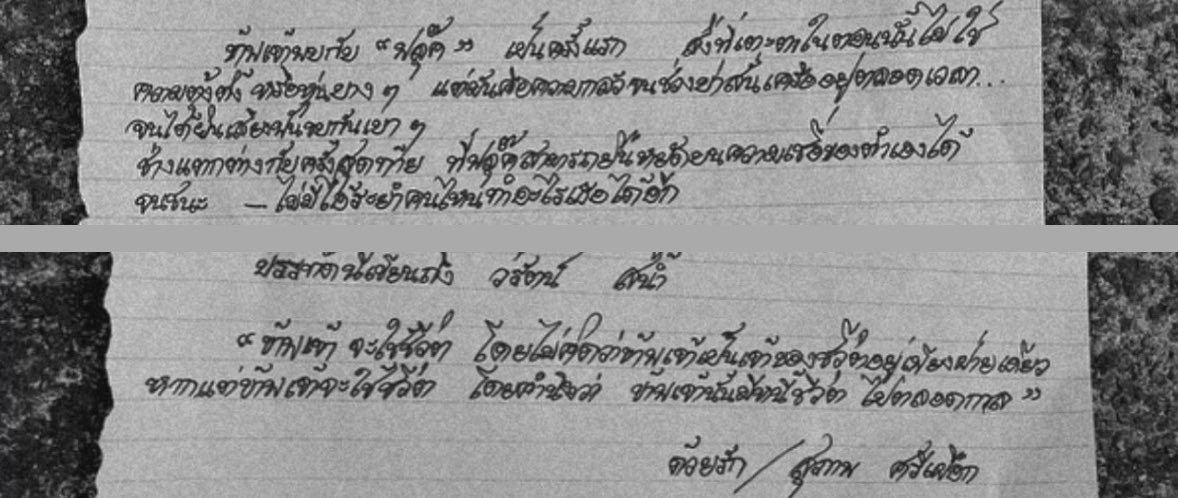 ข้าพเจ้าพบกับ “ฟลุ๊ค” เป็นครั้งแรก สิ่งที่เตะตาในตอนนั้นไม่ใช่
ความตุ้งติ้ง หรือหุ่นบาง ๆ แต่มันคือความกลัวจนช่วงบ่าสั่นเครืออยู่ตลอดเวลา...
จนได้ยินเสียงฟันขบกันเบา ๆ
ช่างแตกต่างกับครั้งสุดท้าย ที่ฟลุ๊คสามารถยืนหยัดบนความเชื่อของตัวเองได้
จนชนะ — ไม่มีไอ้ระยำคนไหนทำอะไรเธอได้อีก
บรรทัดนี้เขียนถึง วรัตน์
“ข้าพเจ้า จะใช้ชีวิต โดยไม่คิดว่าข้าพเจ้าเป็นเจ้าของชีวิตอยู่เพียงฝ่ายเดียว
หากแต่ข้าพเจ้าจะใช้ชีวิต โดยคำนึงว่า ข้าพเจ้านั้นมีหนี้ชีวิต ไปตลอดกาล”
ด้วยรัก / สุภาพ ศรีเผือก